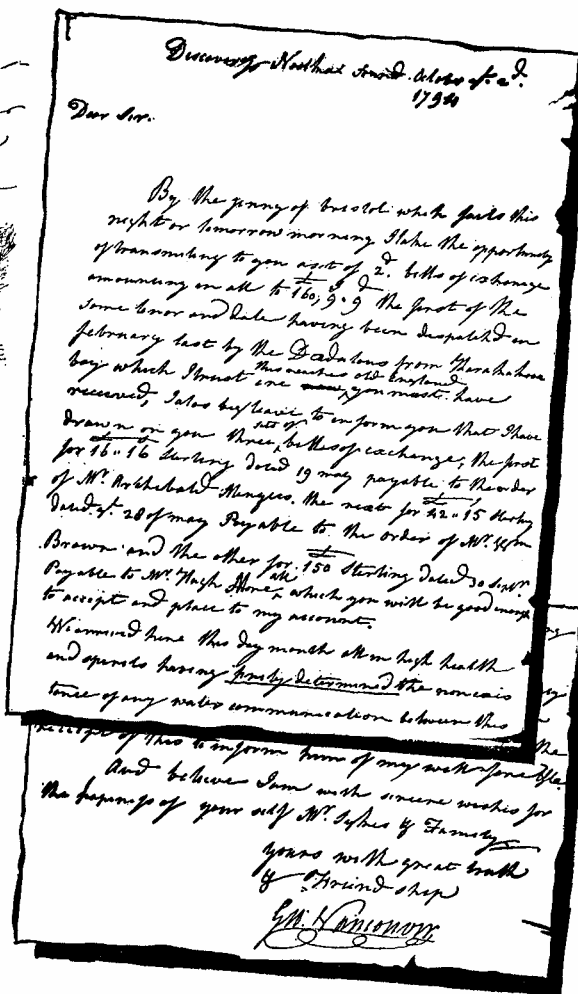 Discovery Nootka Sound. October ye. 2d.
1794
Dear Sir.
By the Jenny of bristol which sails this
night or tomorrow morning I take the opportunity
of transmitting to you a set of 2d. bills of exchange
amounting in all to £160,, 9s,, 9d the first of the
same tenor and date having been dispatch'd in
february last by the Dædalous from Karakakooa
bay which I trust ere this reaches old England you must have
received, I also beg leave to inform you that I have
drawn on you three sets of billes of exchange, the first
for £16,, 16 Sterling dated 19 may payable to the order
of Mr. Archebald Menzies. the next for £42,, 15 Sterlg
dated ye. 28 of may Payable to the order of Mr. Wm
Brown and the other for £150 Sterling dated 30 Septr
Payable to Mr. Hugh all which you will be good enough
to accept and place to my account.
We arrived here this day month all in high health
and spirits having firmly determined the nonexis
tence of any water communication between this
receipt of this to inform him of my wellfare &c.
And believe I am with sincere wishes for
the hapiness of your self Mr. Sykes & Family
yours with great truth
& Friendship
Geo. Vancouver